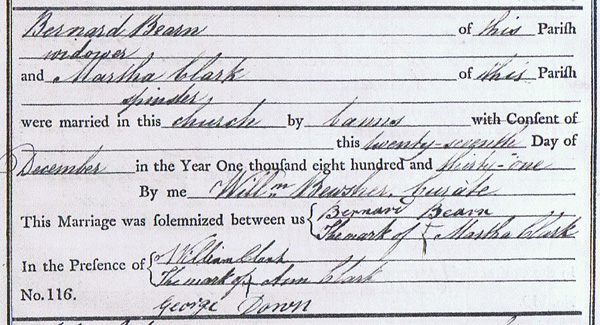 Bernard Bearn of this Pariſh
widower
and Martha Clark of this Pariſh
spinster
were married in this church by banns with Conſent of
this twenty-seventh Day of
December in the Year One thouſand eight hundred and thirty-one
By me Willm Bewsher, curate
This Marriage was ſolemnized between us { Bernard Bearn
The mark of + Martha Clark
In the Preſence of { William Clark
The mark of + Ann Clark
No. 116. George Down